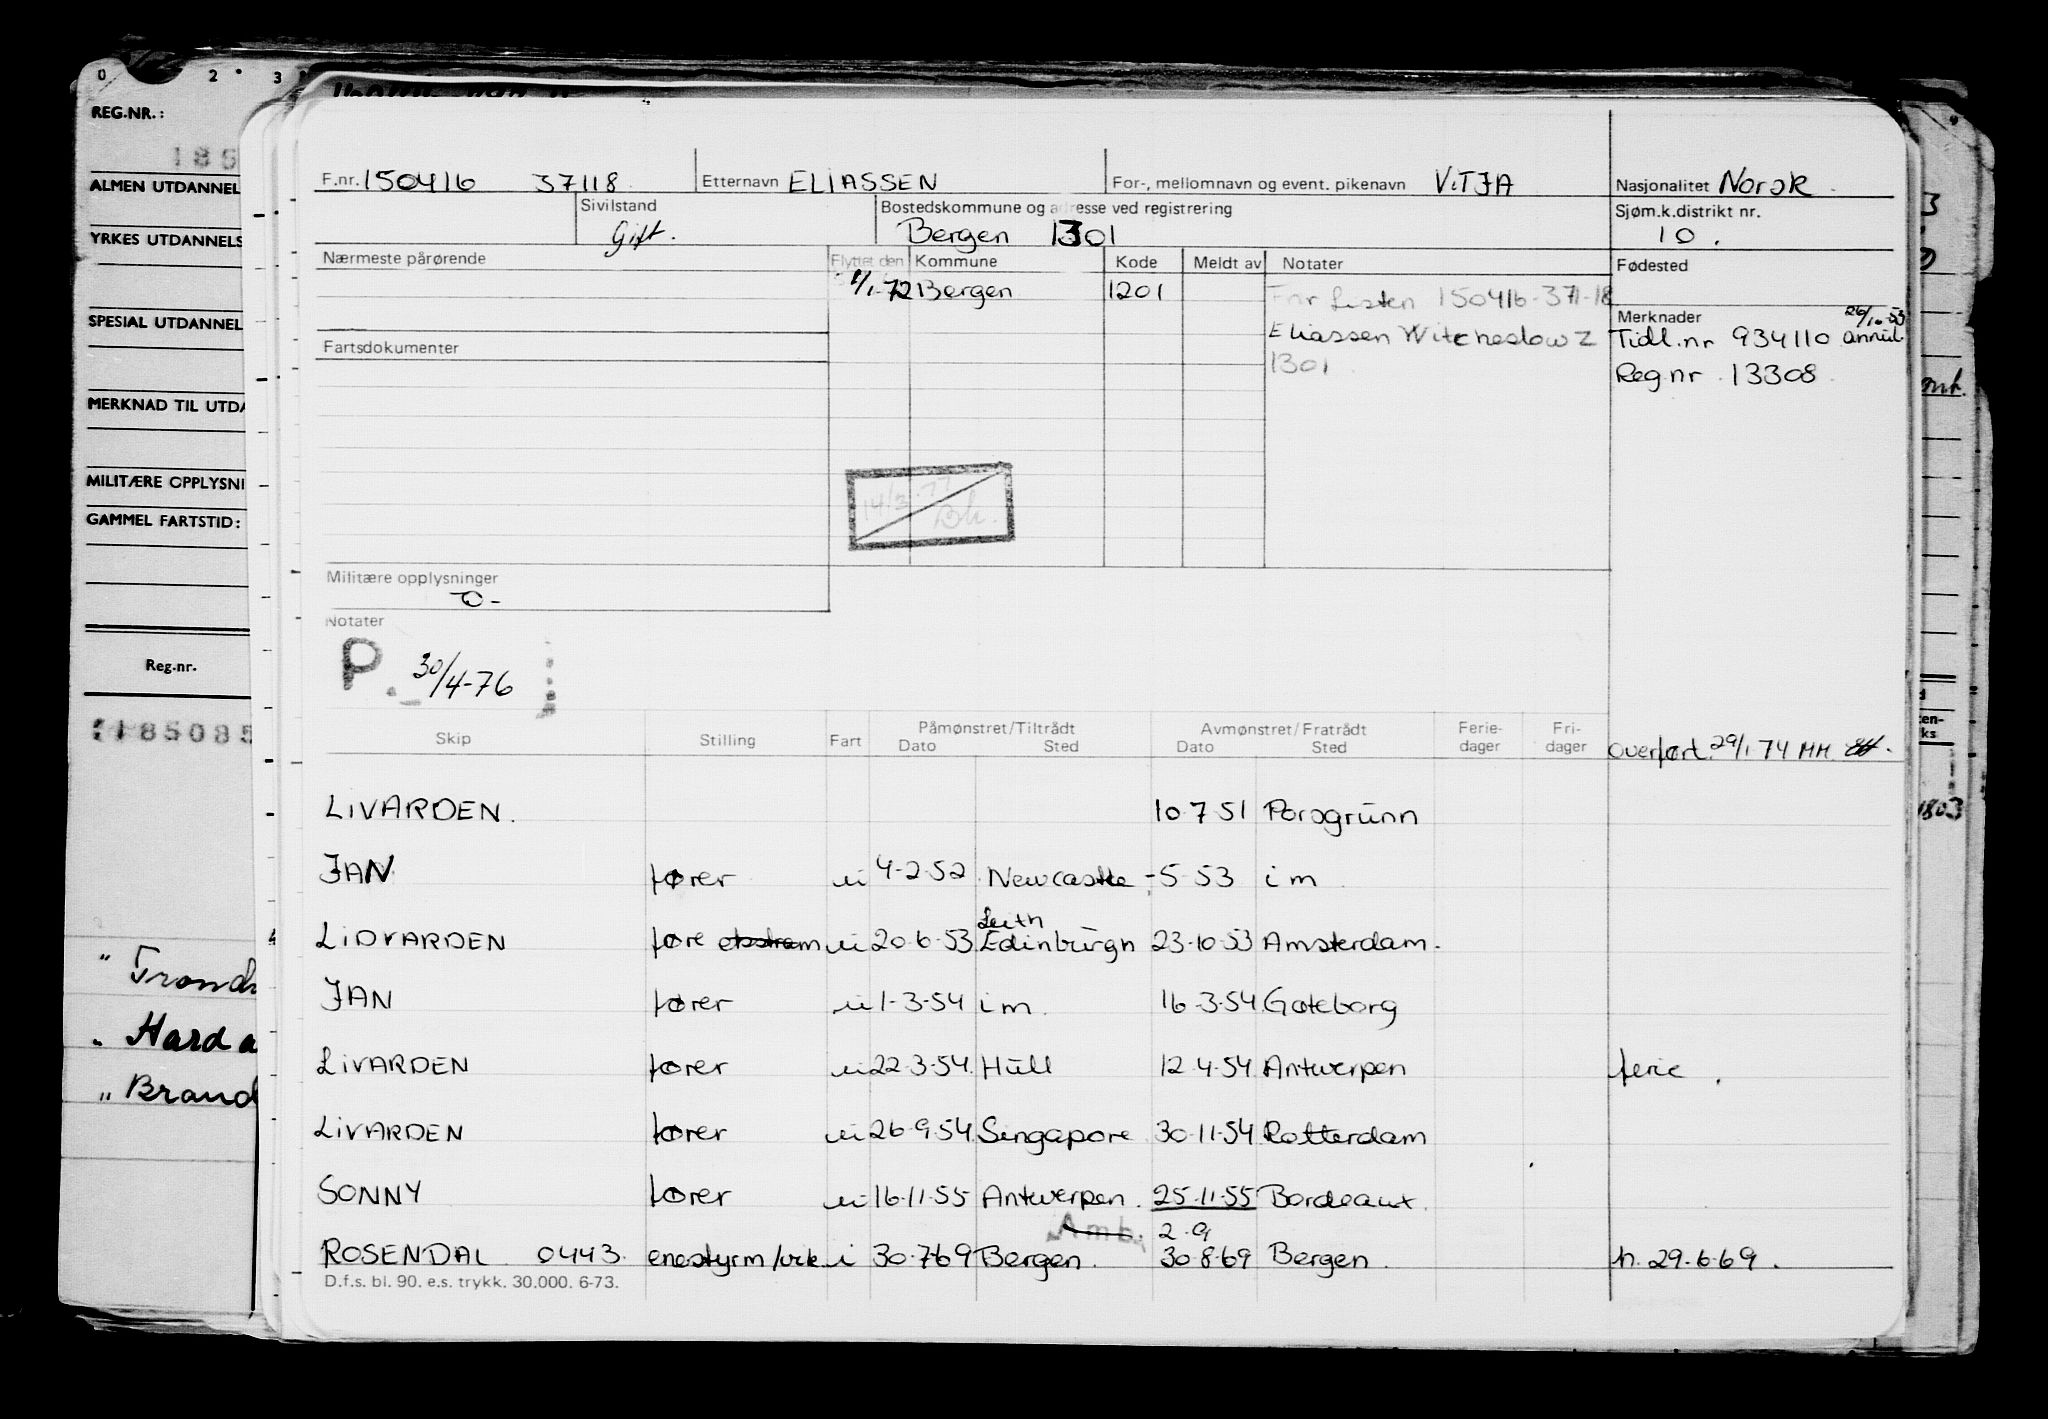 0 2 3
REG.NR.:
185
ALMEN UTDANNEL
YRKES UTDANNELS
SPESIAL UTDANNEL
MERKNAD TIL UTDA
MILITÆRE OPPLYSNI
GAMMEL FARTSTID:
Reg.nr.
185085
" Trondh
" Harda
" Brand
F.nr. 150416 37118 Etternavn ELIASSEN For-, mellomnavn og event. pikenavn VITJA Nasjonalitet Norsk.
Sivilstand Bostedskommune og adresse ved registrering Sjøm.k.distrikt nr.
Gift. Bergen 1301 10.
Nærmeste pårørende Flyttet den Kommune Kode Meldt av Notater Fødested
1/1-72 Bergen 1201 Fnr Listen 150416-371-18
Merknader 26/10-53
Eliassen Witcheslow Z Tidl.nr 934110 annul.
Fartsdokumenter 1301 Reg nr. 13308.
14/3-77
Bh.
Militære opplysninger
-0-
Notater
P. 30/4-76
Skip Stilling Fart Påmønstret/Tiltrådt Avmønstret/Fratrådt Ferie- Fri-
Dato Sted Dato Sted dager dager overført 29/1 74 MM.
LIVARDEN. 10.7.51 Porsgrunn
JAN fører ui 4-2-52 Newcastle -5-53 im
Leith
LIDVARDEN føre ekstrem ui 20-6-53 Edinburgh 23-10-53 Amsterdam.
JAN fører ui 1-3-54 im. 16-3-54 Gøteborg
LIVARDEN fører ui 22-3-54 Hull 12-4-54 Antwerpen ferie.
LIVARDEN fører ui 26-9-54 Singapore 30-11-54 Rotterdam
SONNY fører ui 16-11-55 Antwerpen. 25-11-55 Bordeaux.
Amb. 2.9
ROSENDAL 0443. enestyrm/vik i 30-7-69 Bergen. 30-8-69 Bergen. h. 29-6-69.
D.f.s. bl. 90. e.s. trykk. 30.000. 6-73.
3
ten-
ks
1803